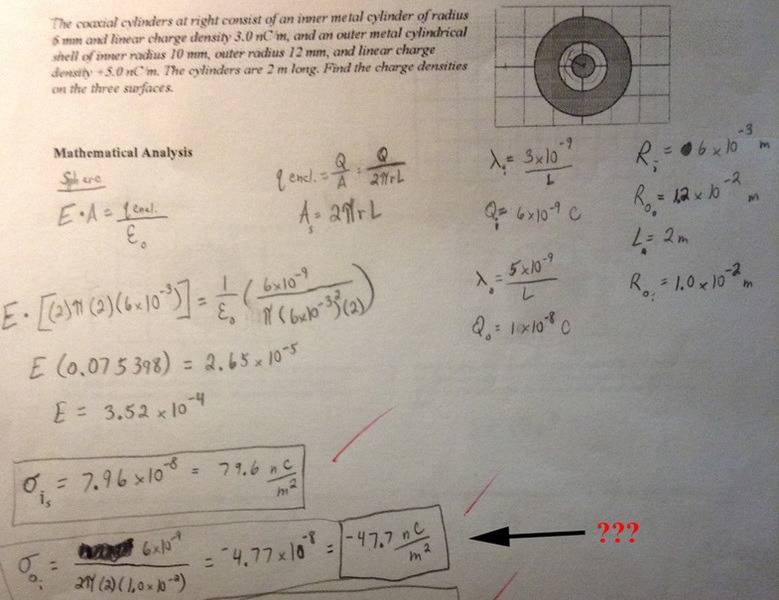 The coaxial cylinders at right consist of an inner metal cylinder of radius
6 mm and linear charge density 3.0 nC/m, and an outer metal cylindrical
shell of inner radius 10 mm, outer radius 12 mm, and linear charge
density +5.0 nC/m. The cylinders are 2 m long. Find the charge densities
on the three surfaces.
Mathematical Analysis
Sphere
E·A = q encl. / ε₀
q encl. = Q/A = Q/2πrL
A_s = 2πrL
λ_i = 3×10⁻⁹ / L
Q_i = 6×10⁻⁹ C
λ_o = 5×10⁻⁹ / L
Q_o = 1×10⁻⁸ C
R_i = 6×10⁻³ m
R_o_o = 1.2×10⁻² m
L = 2 m
R_o_i = 1.0×10⁻² m
E·[(2)π(2)(6×10⁻³)] = 1/ε₀ (6×10⁻⁹ / π(6×10⁻³)²(2))
E (0.075398) = 2.65×10⁻⁵
E = 3.52×10⁻⁴
σ_i_s = 7.96×10⁻⁸ = 79.6 nC/m²
σ_o_i = 6×10⁻⁹ / 2π(2)(1.0×10⁻²) = ⁻4.77×10⁻⁸ = -47.7 nC/m²
???